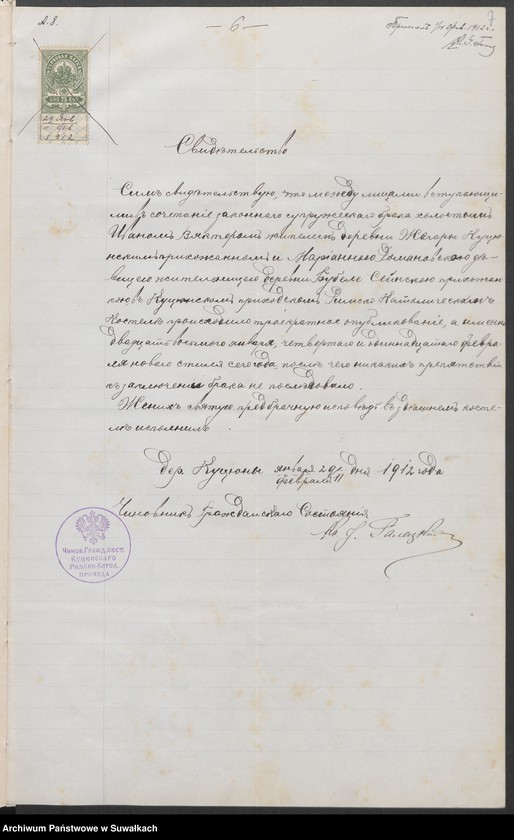 А. 8.
— 6 —
7
1912
КОП 75 КОП
29 Янв
11 Фев
1912
Свидѣтельство
Симъ свидѣтельствую, что между лицами вступающи-
ми въ сочетаніе законнаго супружескаго брака холостымъ
Иваномъ жителемъ деревни Жегары Куцюн-
скимъ прихожаниномъ и Маріанною Домановскою дѣ-
вицею жительницею деревни Бубеле Сейнскою прихожан-
кою въ Куцюнскомъ приходскомъ Римско Католическомъ
Костелѣ происходило троекратное опубликованіе, а именно
двадцать восьмого января, четвертаго и одиннадцатаго февра-
ля новаго стиля сего года, послѣ чего никакихъ препятствій
къ заключенію брака не послѣдовало.
Женихъ святую предбрачную исповѣдь въ здѣшнемъ косте-
лѣ исполнилъ.
дер. Куцюны января 29 / февраля 11 дня 1912 года
Чиновникъ Гражданскаго Состоянія
Чинов. Гражд. сост.
Куцюнскаго
Римско-Катол.
прихода
Archiwum Państwowe w Suwałkach